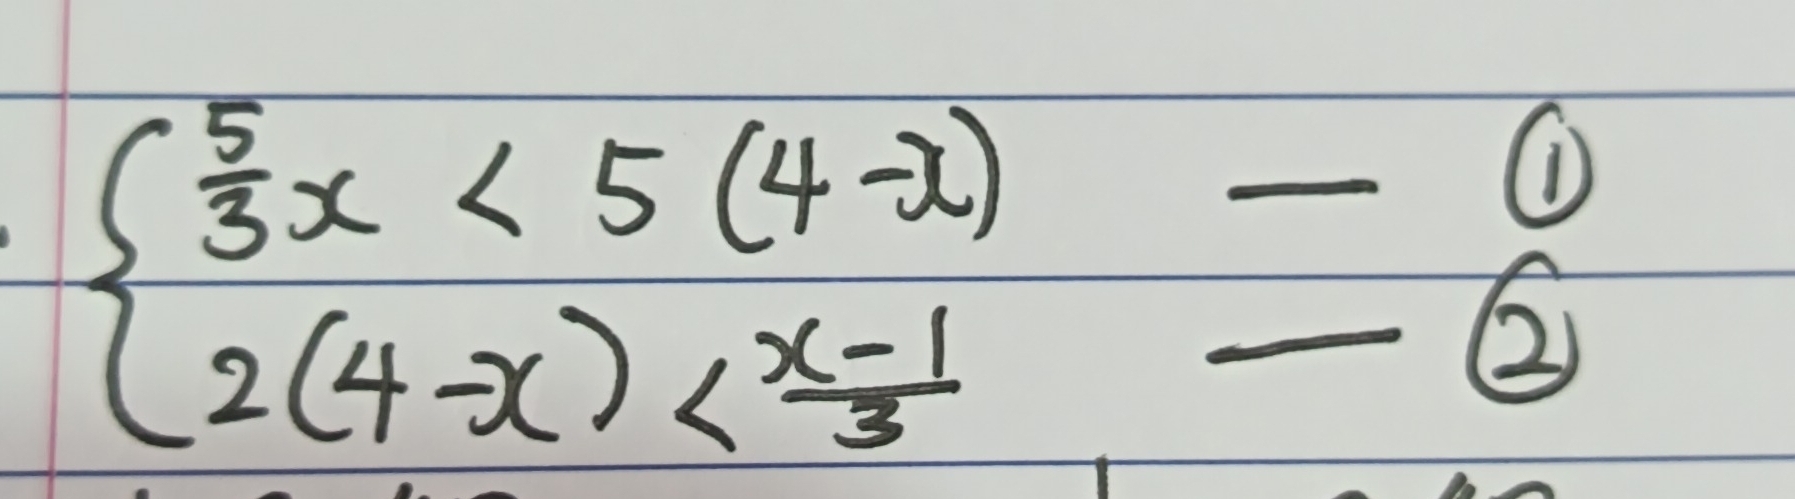 { 5/3 x < 5 (4 - x) — ①
2 (4 - x) < (x - 1)/3 — ②